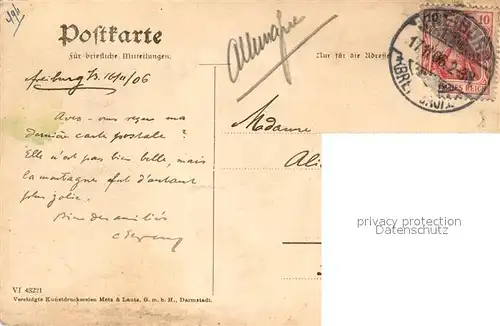 Postkarte
Für briefliche Mitteilungen.
Nur für die Adresse
Allemagne
Freiburg 16/11/06
Avez-vous reçu ma
dernière carte postale ?
Elle n'est pas bien belle, mais
la montagne est d'autant
plus jolie.
Bien des amitiés
Madame
Ali
10
10
DEUTSCHES REICH
VI 43221
Vereinigte Kunstdruckereien Metz & Lautz, G. m. b. H., Darmstadt.
permission only
©DARABANTH